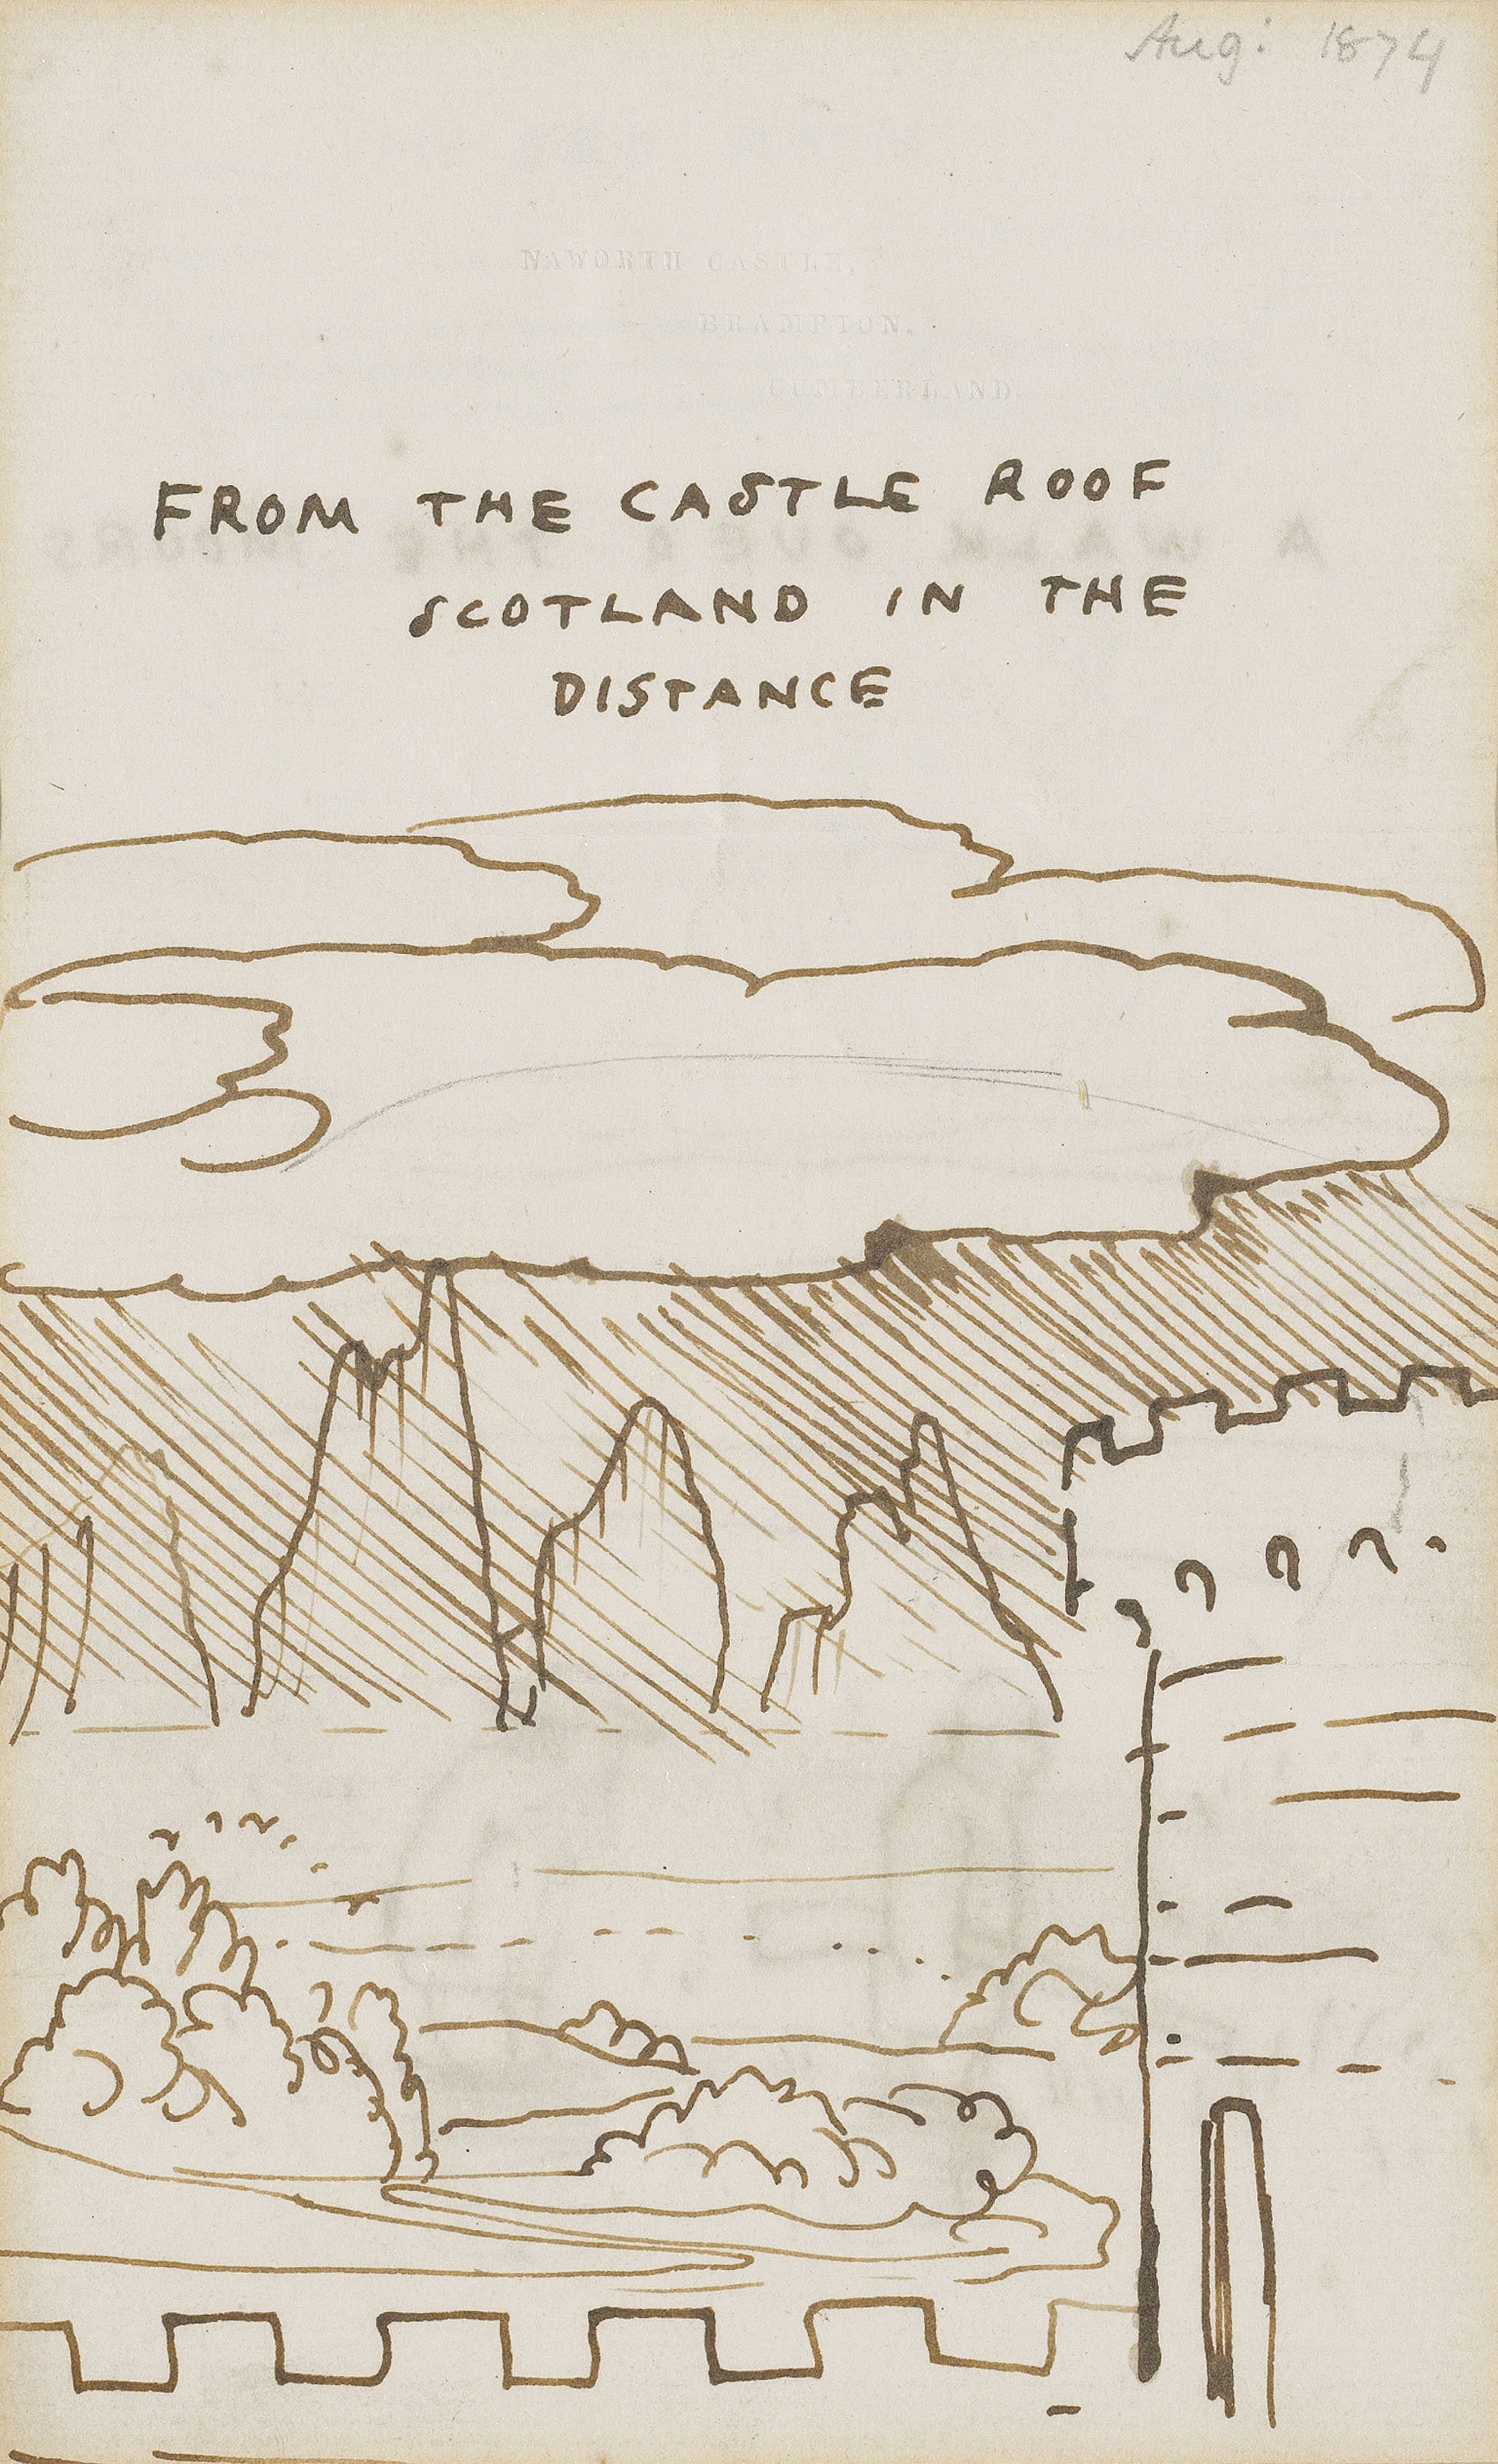 Aug: 1874
NAWORTH CASTLE,
BRAMPTON,
CUMBERLAND.
FROM THE CASTLE ROOF
SCOTLAND IN THE
DISTANCE